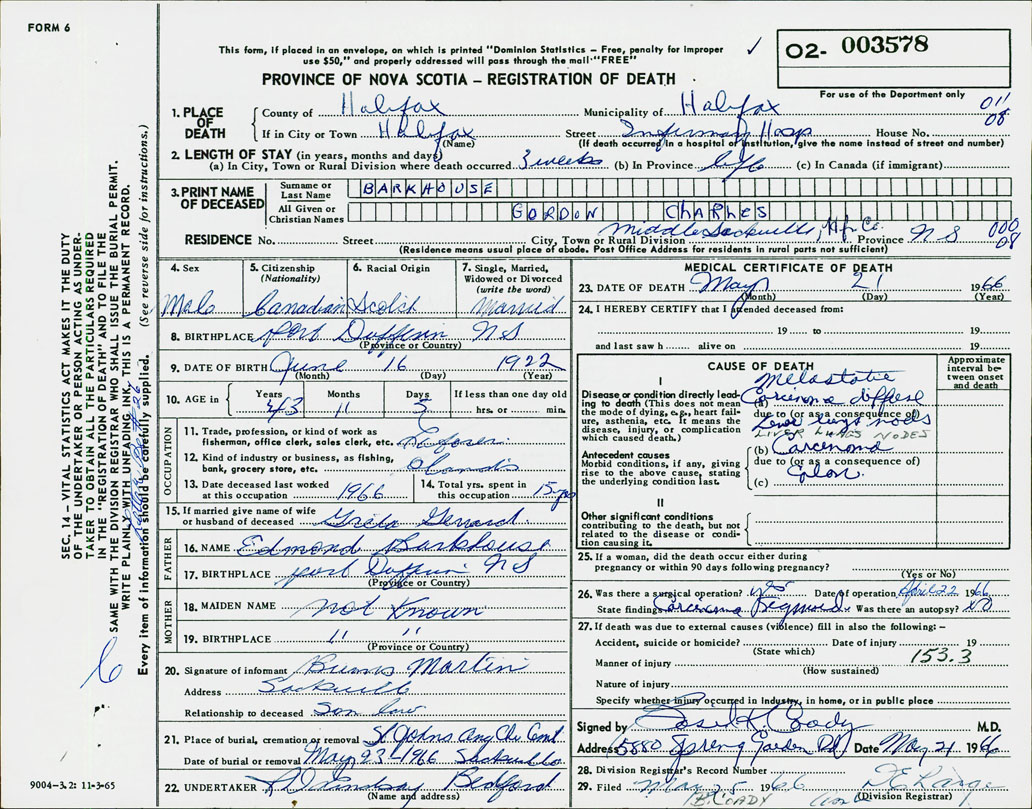 FORM 6
This form, if placed in an envelope, on which is printed "Dominion Statistics – Free, penalty for improper
use $50," and properly addressed will pass through the mail "FREE"
✓
02- 003578
For use of the Department only
PROVINCE OF NOVA SCOTIA – REGISTRATION OF DEATH
1. PLACE OF DEATH
County of Halifax Municipality of Halifax 011
If in City or Town Halifax Street Infirmary Hosp House No. 08
(Name) (If death occurred in a hospital or institution, give the name instead of street and number)
2. LENGTH OF STAY (in years, months and days)
(a) In City, Town or Rural Division where death occurred 3 weeks (b) In Province Life (c) In Canada (if immigrant)
3. PRINT NAME OF DECEASED
Surname or Last Name BARKHOUSE
All Given or Christian Names GORDON CHARLES
RESIDENCE No. Street City, Town or Rural Division Middle Sackville, Hfx Co. Province N S 000 08
(Residence means usual place of abode. Post Office Address for residents in rural parts not sufficient)
4. Sex Male
5. Citizenship (Nationality) Canadian
6. Racial Origin Scotch
7. Single, Married, Widowed or Divorced (write the word) Married
8. BIRTHPLACE Port Dufferin N S
(Province or Country)
9. DATE OF BIRTH June 16 1922
(Month) (Day) (Year)
10. AGE in Years 43 Months 11 Days 5 If less than one day old hrs. or min.
OCCUPATION
11. Trade, profession, or kind of work as
fisherman, office clerk, sales clerk, etc. Laborer
12. Kind of industry or business, as fishing,
bank, grocery store, etc.
13. Date deceased last worked
at this occupation 1966
14. Total yrs. spent in
this occupation 15 yrs
15. If married give name of wife
or husband of deceased Greta Gerrard
FATHER
16. NAME Edmond Barkhouse
17. BIRTHPLACE Port Dufferin N S
(Province or Country)
MOTHER
18. MAIDEN NAME not Known
19. BIRTHPLACE " "
(Province or Country)
20. Signature of informant Burns Martin
Address Sackville
Relationship to deceased Son law
21. Place of burial, cremation or removal St Johns Ang Chu Cemt
Date of burial or removal May 23 - 1966 Sackville
22. UNDERTAKER Lindsay Bedford
(Name and address)
9004-3.2: 11-3-65
MEDICAL CERTIFICATE OF DEATH
23. DATE OF DEATH May 21 1966
(Month) (Day) (Year)
24. I HEREBY CERTIFY that I attended deceased from:
19 to 19
and last saw h alive on 19
CAUSE OF DEATH
Approximate interval between onset and death
I
Disease or condition directly leading to death (This does not mean the mode of dying, e.g., heart failure, asthenia, etc. It means the disease, injury, or complication which caused death.)
Metastatic
(a) Carcinoma diffuse
due to (or as a consequence of)
Liver lungs nods
LIVER LUNGS NODES
Antecedent causes
Morbid conditions, if any, giving rise to the above cause, stating the underlying condition last.
(b) Carcinoma
due to (or as a consequence of)
Colon
(c)
II
Other significant conditions
contributing to the death, but not related to the disease or condition causing it.
25. If a woman, did the death occur either during
pregnancy or within 90 days following pregnancy?
(Yes or No)
26. Was there a surgical operation? yes Date of operation April 22 1966
State findings Carcinoma Sigmoid Was there an autopsy? NO
27. If death was due to external causes (violence) fill in also the following: –
Accident, suicide or homicide? Date of injury 19
(State which) 153.3
Manner of injury
(How sustained)
Nature of injury
Specify whether injury occurred in industry, in home, or in public place
Signed by K. Coady M.D.
Address 5880 Spring Garden Rd Date May 21 1966
28. Division Registrar's Record Number
29. Filed May 25 1966
(Division Registrar)
COADY
SEC. 14 – VITAL STATISTICS ACT MAKES IT THE DUTY
OF THE UNDERTAKER OR PERSON ACTING AS UNDER-
TAKER TO OBTAIN ALL THE PARTICULARS REQUIRED
IN THE "REGISTRATION OF DEATH" AND TO FILE THE
SAME WITH THE DIVISION REGISTRAR WHO SHALL ISSUE THE BURIAL PERMIT.
WRITE PLAINLY WITH UNFADING INK, THIS IS A PERMANENT RECORD.
Every item of information should be carefully supplied. (See reverse side for instructions.)